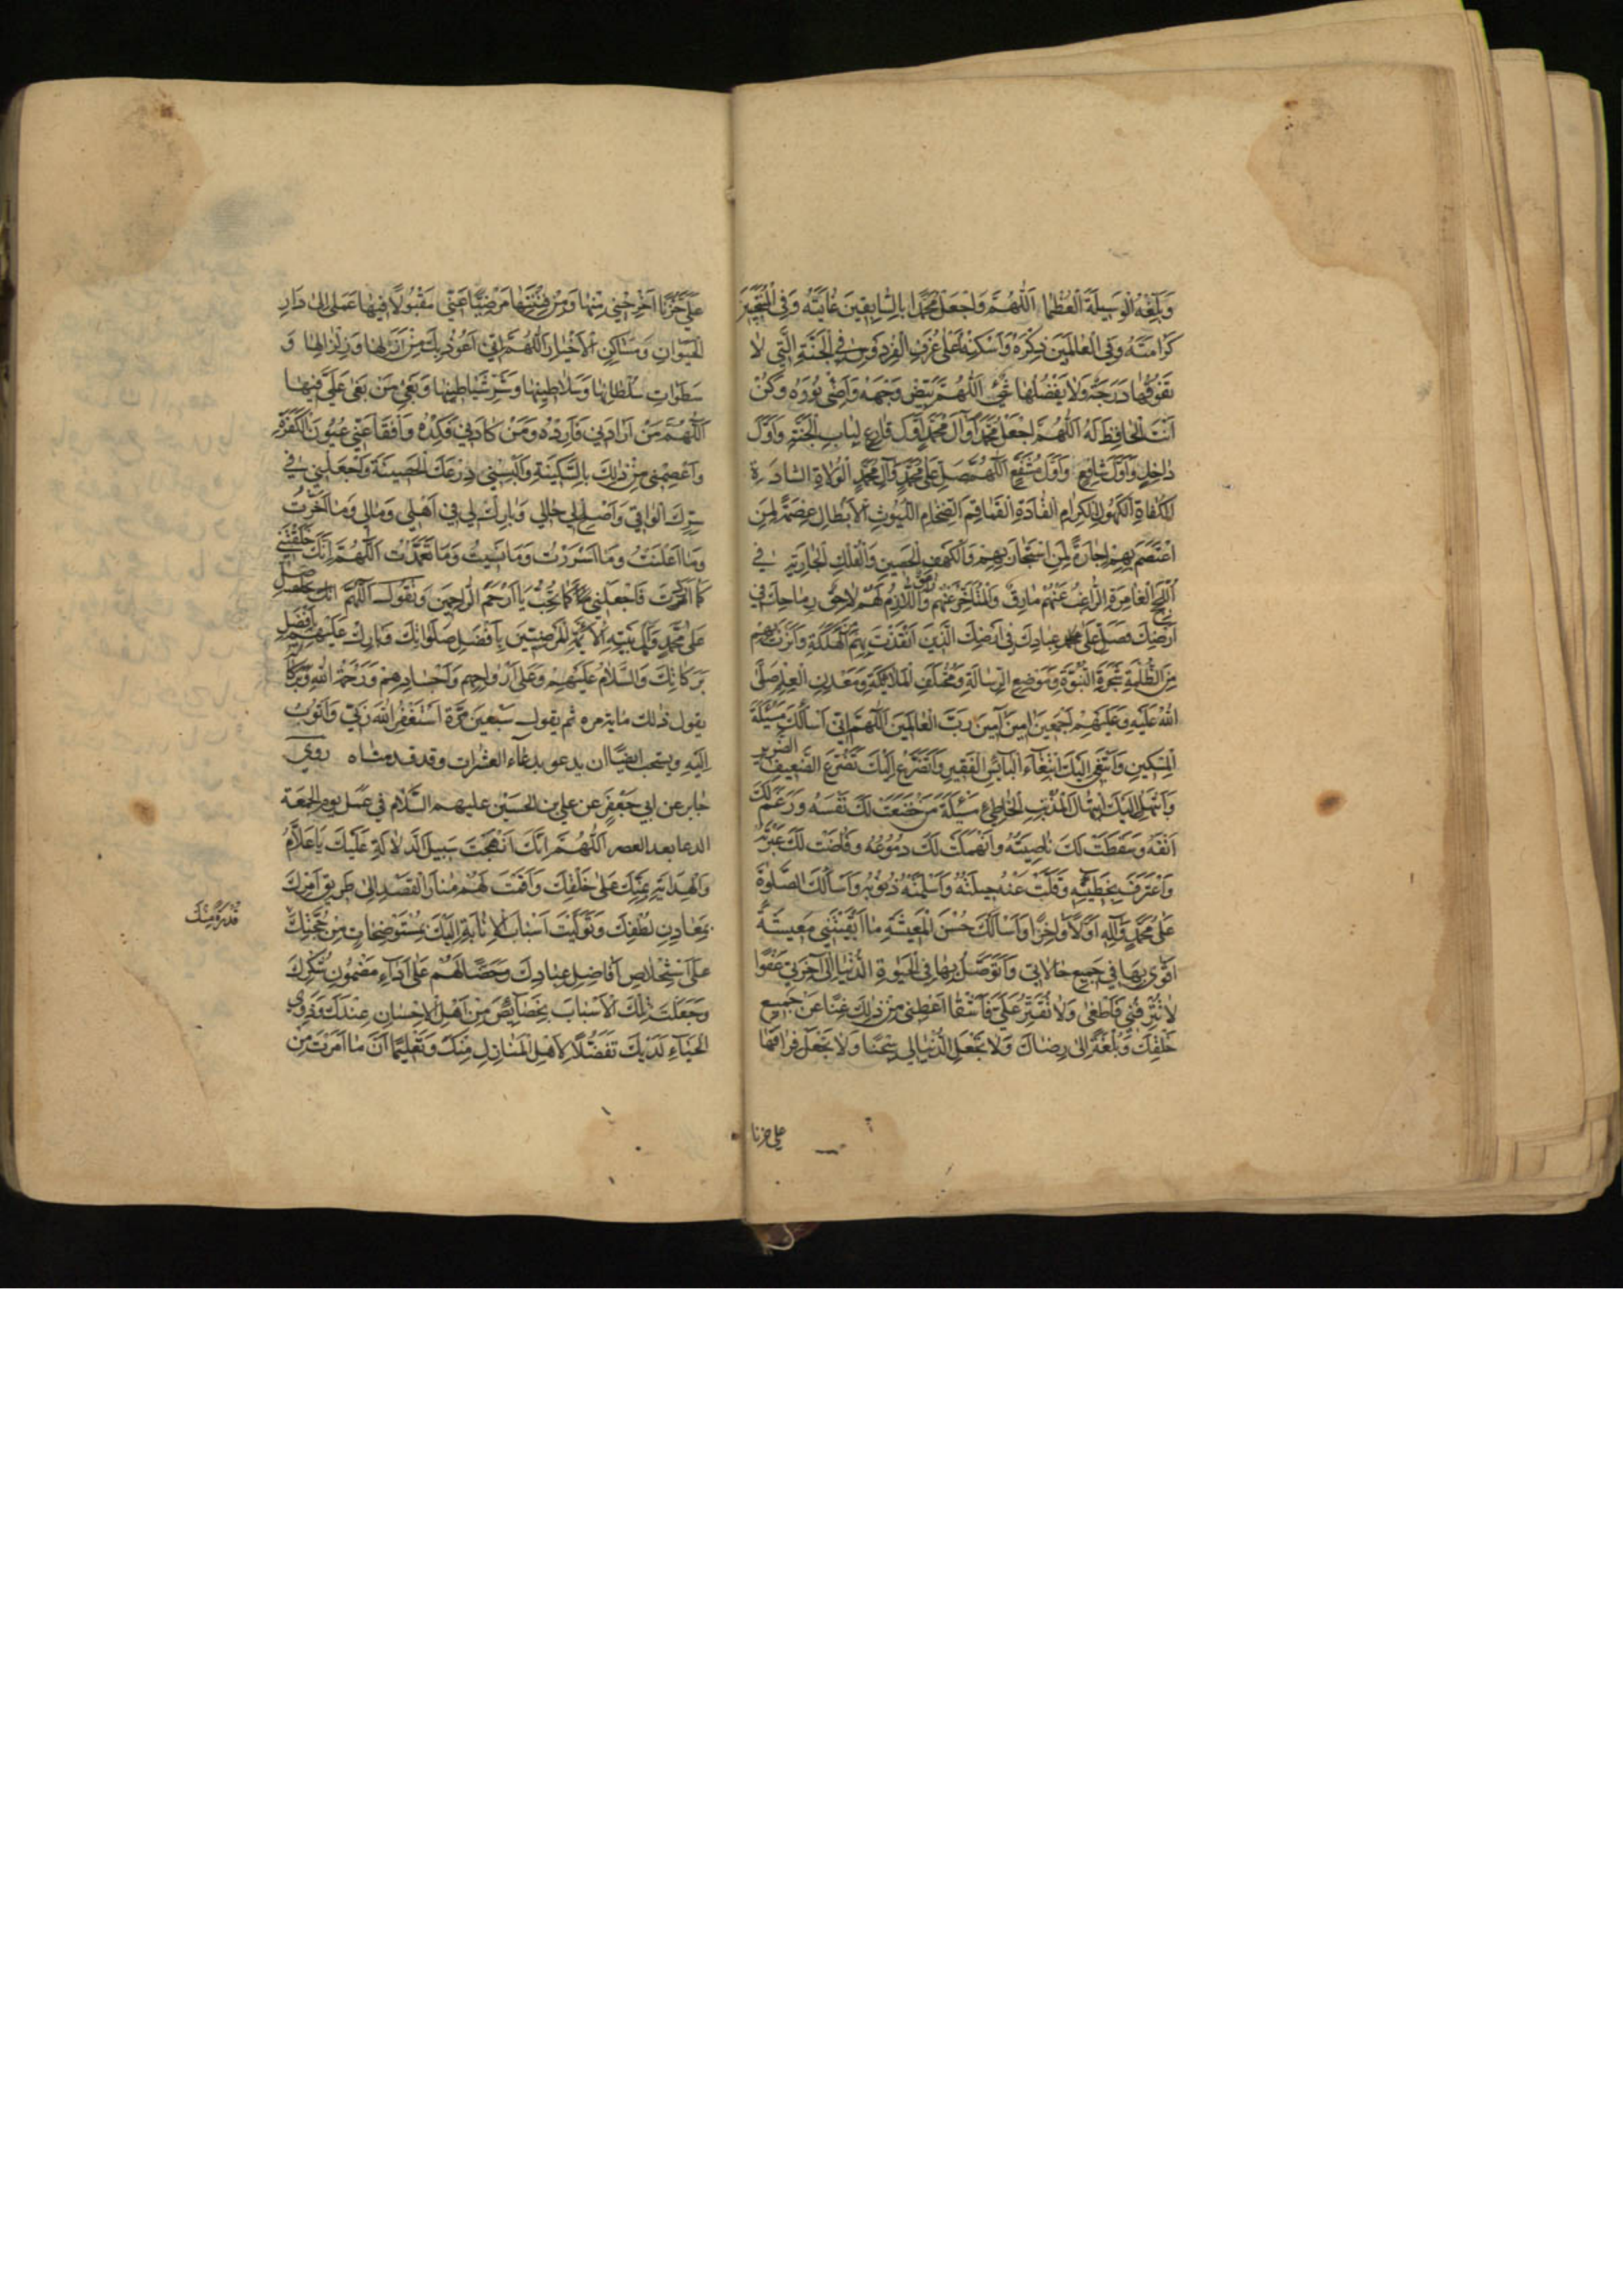 وَبَلِّغْهُ الْوَسِيلَةَ الْعُظْمَا اَللّٰهُمَّ وَاجْعَلْ مُحَمَّدًا بِالسَّابِقِينَ غَايَتَهُ وَفِي الْمُنْتَجَبِينَ
كَرَامَتَهُ وَفِي الْعَالَمِينَ ذِكْرَهُ وَاَسْكِنْهُ اَعْلٰى غُرَفِ الْفِرْدَوْسِ فِي الْجَنَّةِ الَّتِي لَا
تَفُوقُهَا دَرَجَةٌ وَلَا يَفْضُلُهَا شَيْءٌ اَللّٰهُمَّ بَيِّضْ وَجْهَهُ وَاَضِئْ نُورَهُ وَكُنْ
اَنْتَ الْحَافِظَ لَهُ اَللّٰهُمَّ اجْعَلْ مُحَمَّدًا وَآلَ مُحَمَّدٍ اَوَّلَ قَارِعٍ لِبَابِ الْجَنَّةِ وَاَوَّلَ
دَاخِلٍ وَاَوَّلَ شَافِعٍ وَاَوَّلَ مُشَفَّعٍ اَللّٰهُمَّ صَلِّ عَلٰى مُحَمَّدٍ وَآلِ مُحَمَّدٍ الْوُلَاةِ السَّادَةِ
الْكُفَاةِ الْكُهُولِ الْكِرَامِ الْقَادَةِ الْقَمَاقِمِ الضِّخَامِ اللُّيُوثِ الْاَبْطَالِ عِصْمَةً لِمَنِ
اعْتَصَمَ بِهِمْ وَاِجَارَةً لِمَنِ اسْتَجَارَ بِهِمْ وَالْكَهْفِ الْحَصِينِ وَالْفُلْكِ الْجَارِيَةِ فِي
اللُّجَجِ الْغَامِرَةِ الرَّاغِبُ عَنْهُمْ مَارِقٌ وَالْمُتَاَخِّرُ عَنْهُمْ زَاهِقٌ وَاللَّازِمُ لَهُمْ لَاحِقٌ رِمَاحِكَ فِي
اَرْضِكَ وَصَلِّ عَلٰى عِبَادِكَ فِي اَرْضِكَ الَّذِينَ اَنْقَذْتَ بِهِمْ مِنَ الْهَلَكَةِ وَاَنَرْتَ بِهِمْ
مِنَ الظُّلْمَةِ شَجَرَةِ النُّبُوَّةِ وَمَوْضِعِ الرِّسَالَةِ وَمُخْتَلَفِ الْمَلَائِكَةِ وَمَعْدِنِ الْعِلْمِ صَلَّى
اللّٰهُ عَلَيْهِ وَعَلَيْهِمْ اَجْمَعِينَ آمِينَ آمِينَ رَبَّ الْعَالَمِينَ اَللّٰهُمَّ اِنِّي اَسْأَلُكَ مَسْئَلَةَ
الْمِسْكِينِ وَاَبْتَغِي اِلَيْكَ ابْتِغَاءَ الْبَائِسِ الْفَقِيرِ وَاَتَضَرَّعُ اِلَيْكَ تَضَرُّعَ الضَّعِيفِ الضَّرِيرِ
وَاَبْتَهِلُ اِلَيْكَ ابْتِهَالَ الْمُذْنِبِ الْخَاطِئِ مَسْئَلَةَ مَنْ خَضَعَتْ لَكَ نَفْسُهُ وَرَغَمَ لَكَ
اَنْفُهُ وَسَقَطَتْ لَكَ نَاصِيَتُهُ وَانْهَمَلَتْ لَكَ دُمُوعُهُ وَفَاضَتْ لَكَ عَبْرَتُهُ
وَاعْتَرَفَ بِخَطِيئَتِهِ وَقَلَّتْ عَنْهُ حِيلَتُهُ وَاَسْلَمَتْهُ ذُنُوبُهُ وَاَسْأَلُكَ الصَّلٰوةَ
عَلٰى مُحَمَّدٍ وَآلِهِ اَوَّلًا وَآخِرًا وَاَسْأَلُكَ حُسْنَ الْمَعِيشَةِ مَا اَبْقَيْتَنِي مَعِيشَةً
اَقْوٰى بِهَا فِي جَمِيعِ حَالَاتِي وَاَتَوَصَّلُ بِهَا فِي الْحَيٰوةِ الدُّنْيَا اِلٰى آخِرَتِي عَفْوًا
لَا تُتْرِفُنِي فَاَطْغٰى وَلَا تُقَتِّرْ عَلَيَّ فَاَشْقٰا اَعْطِنِي مِنْ ذٰلِكَ غِنًا عَنْ جَمِيعِ
خَلْقِكَ وَبُلْغَةً اِلٰى رِضَاكَ وَلَا تَجْعَلِ الدُّنْيَا لِي سِجْنًا وَلَا تَجْعَلْ فِرَاقَهَا
على حزنا
عَلَيَّ حُزْنًا اَخْرِجْنِي مِنْهَا وَمِنْ فِتْنَتِهَا مَرْضِيًّا عَنِّي مَقْبُولًا فِيهَا عَمَلِي اِلٰى دَارِ
الْحَيَوَانِ وَمَسَاكِنِ الْاَخْيَارِ اَللّٰهُمَّ اِنِّي اَعُوذُ بِكَ مِنْ اَزْلِهَا وَزِلْزَالِهَا وَ
سَطَوَاتِ سُلْطَانِهَا وَسَلَاطِينِهَا وَشَرِّ شَيَاطِينِهَا وَبَغْيِ مَنْ بَغٰى عَلَيَّ فِيهَا
اَللّٰهُمَّ مَنْ اَرَادَنِي فَاَرِدْهُ وَمَنْ كَادَنِي فَكِدْهُ وَافْقَأْ عَنِّي عُيُونَ الْكَفَرَةِ
وَاعْصِمْنِي مِنْ ذٰلِكَ بِالسَّكِينَةِ وَاَلْبِسْنِي دِرْعَكَ الْحَصِينَةَ وَاجْعَلْنِي فِي
سِتْرِكَ الْوَاقِي وَاَصْلِحْ لِي حَالِي وَبَارِكْ لِي فِي اَهْلِي وَمَالِي وَمَا اَخَّرْتُ
وَمَا اَعْلَنْتُ وَمَا اَسْرَرْتُ وَمَا نَسِيتُ وَمَا تَعَمَّدْتُ اَللّٰهُمَّ اِنَّكَ خَلَقْتَنِي
كَمَا اَرَدْتَ فَاجْعَلْنِي كَمَا تُحِبُّ يَا اَرْحَمَ الرَّاحِمِينَ وَتَقُولُ اَللّٰهُمَّ صَلِّ
عَلٰى مُحَمَّدٍ وَاَهْلِ بَيْتِهِ الْاَئِمَّةِ الْمَرْضِيِّينَ بِاَفْضَلِ صَلَوَاتِكَ وَبَارِكْ عَلَيْهِمْ بِاَفْضَلِ
بَرَكَاتِكَ وَالسَّلَامُ عَلَيْهِمْ وَعَلٰى اَرْوَاحِهِمْ وَاَجْسَادِهِمْ وَرَحْمَةُ اللّٰهِ وَبَرَكَاتُهُ
يقول ذلك مايةمره ثم يقول سَبْعِينَ مَرَّةً اَسْتَغْفِرُ اللّٰهَ رَبِّي وَاَتُوبُ
اِلَيْهِ ويستحب ايضًا ان يدعو بدعاء العشرات وقد قدمناه روي
جابر عن ابي جَعْفَرٍ عن علي بن الحسين عليهم السَّلَام في عمل يوم الجمعة
الدعا بعد العصر اَللّٰهُمَّ اِنَّكَ اَنْهَجْتَ سَبِيلَ الدَّلَالَةِ عَلَيْكَ يَا عَلَّامُ
وَالْهِدَايَةِ بِمَنِّكَ عَلٰى خَلْقِكَ وَاَقَمْتَ لَهُمْ مَنَارَ الْقَصْدِ اِلٰى طَرِيقِ اَمْرِكَ
بِمَعَادِنِ لُطْفِكَ وَتَوَلَّيْتَ اَسْبَابَ الْاِنَابَةِ اِلَيْكَ بِمُسْتَوْضِحَاتٍ مِنْ حُجَجِكَ
قُدْرَةً مِنْكَ
عَلٰى اسْتِخْلَاصِ اَفَاضِلِ عِبَادِكَ وَحَضًّا لَهُمْ عَلٰى اَدَاءِ مَضْمُونِ شُكْرِكَ
وَجَعَلْتَ تِلْكَ الْاَسْبَابَ بِخَصَائِصَ مِنْ اَهْلِ الْاِحْسَانِ عِنْدَكَ وَذَوِي
الْحِبَاءِ لَدَيْكَ تَفَضُّلًا لِاَهْلِ الْمَنَازِلِ مِنْكَ وَتَعْلِيمًا اَنَّ مَا اَمَرْتَ مِنْ